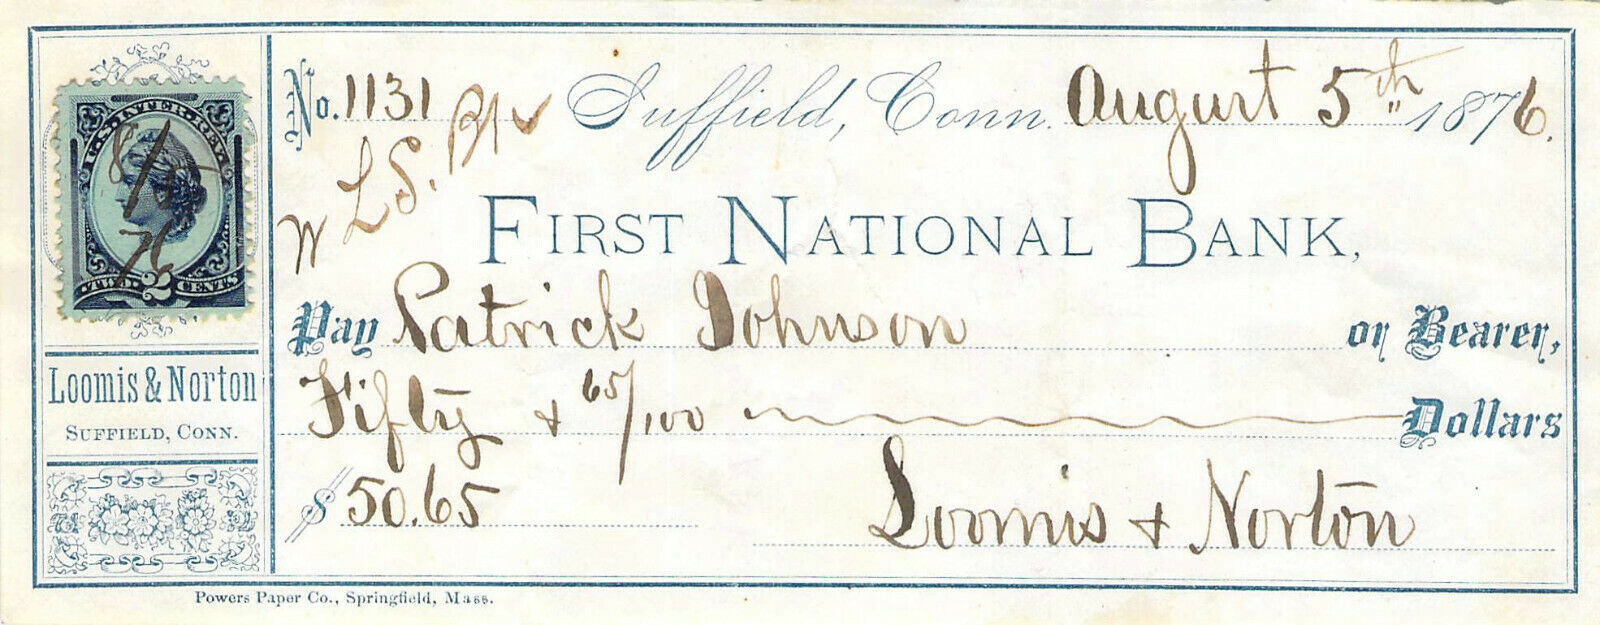 No. 1131
Suffield, Conn. August 5th 1876.
L S.
FIRST NATIONAL BANK,
Pay Patrick Johnson or Bearer,
Fifty & 65/100 Dollars
$ 50.65
Loomis & Norton
U.S. INTER. REV.
8/5
76
TWO 2 CENTS
LOOMIS & NORTON
SUFFIELD, CONN.
Powers Paper Co., Springfield, Mass.